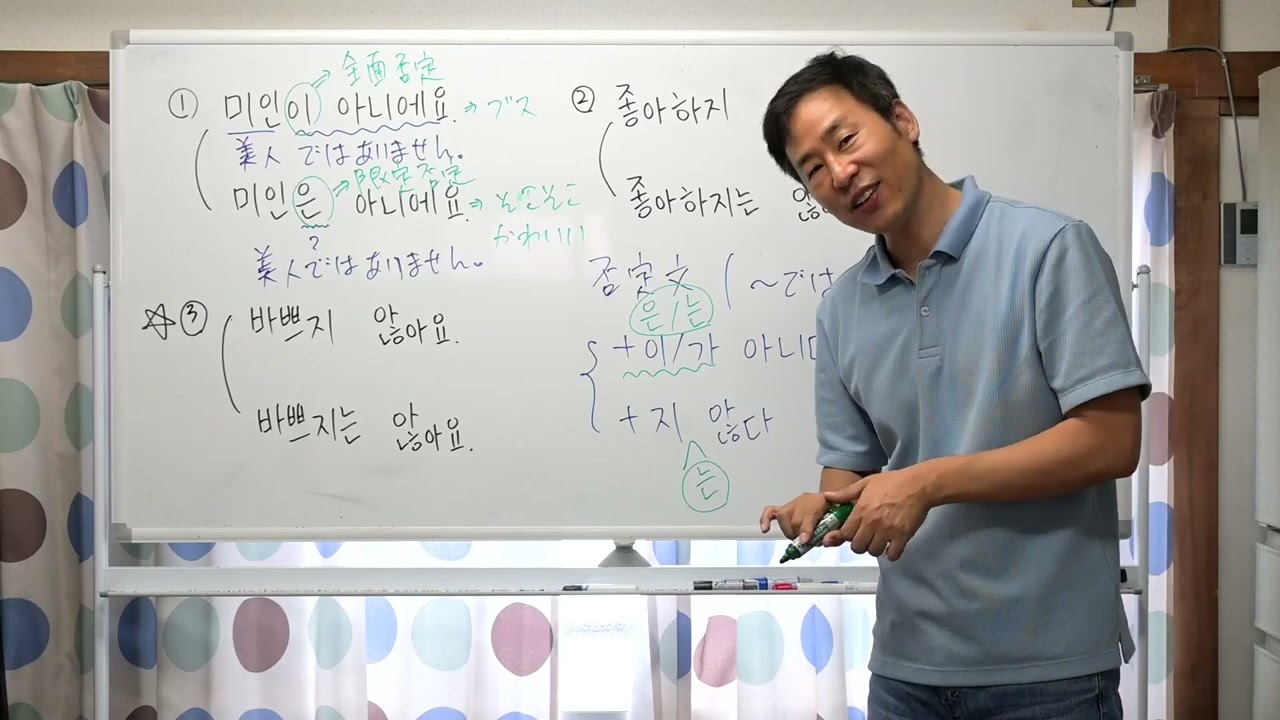 全面否定
① 미인이 아니에요. → ブス
美人ではありません。
限定否定
미인은 아니에요. → そこそこ
かわいい
?
美人ではありません。
☆③ 바쁘지 않아요.
바쁘지는 않아요.
② 좋아하지
좋아하지는 않
否定文 (~では
은/는
+이/가 아니다
+지 않다
는